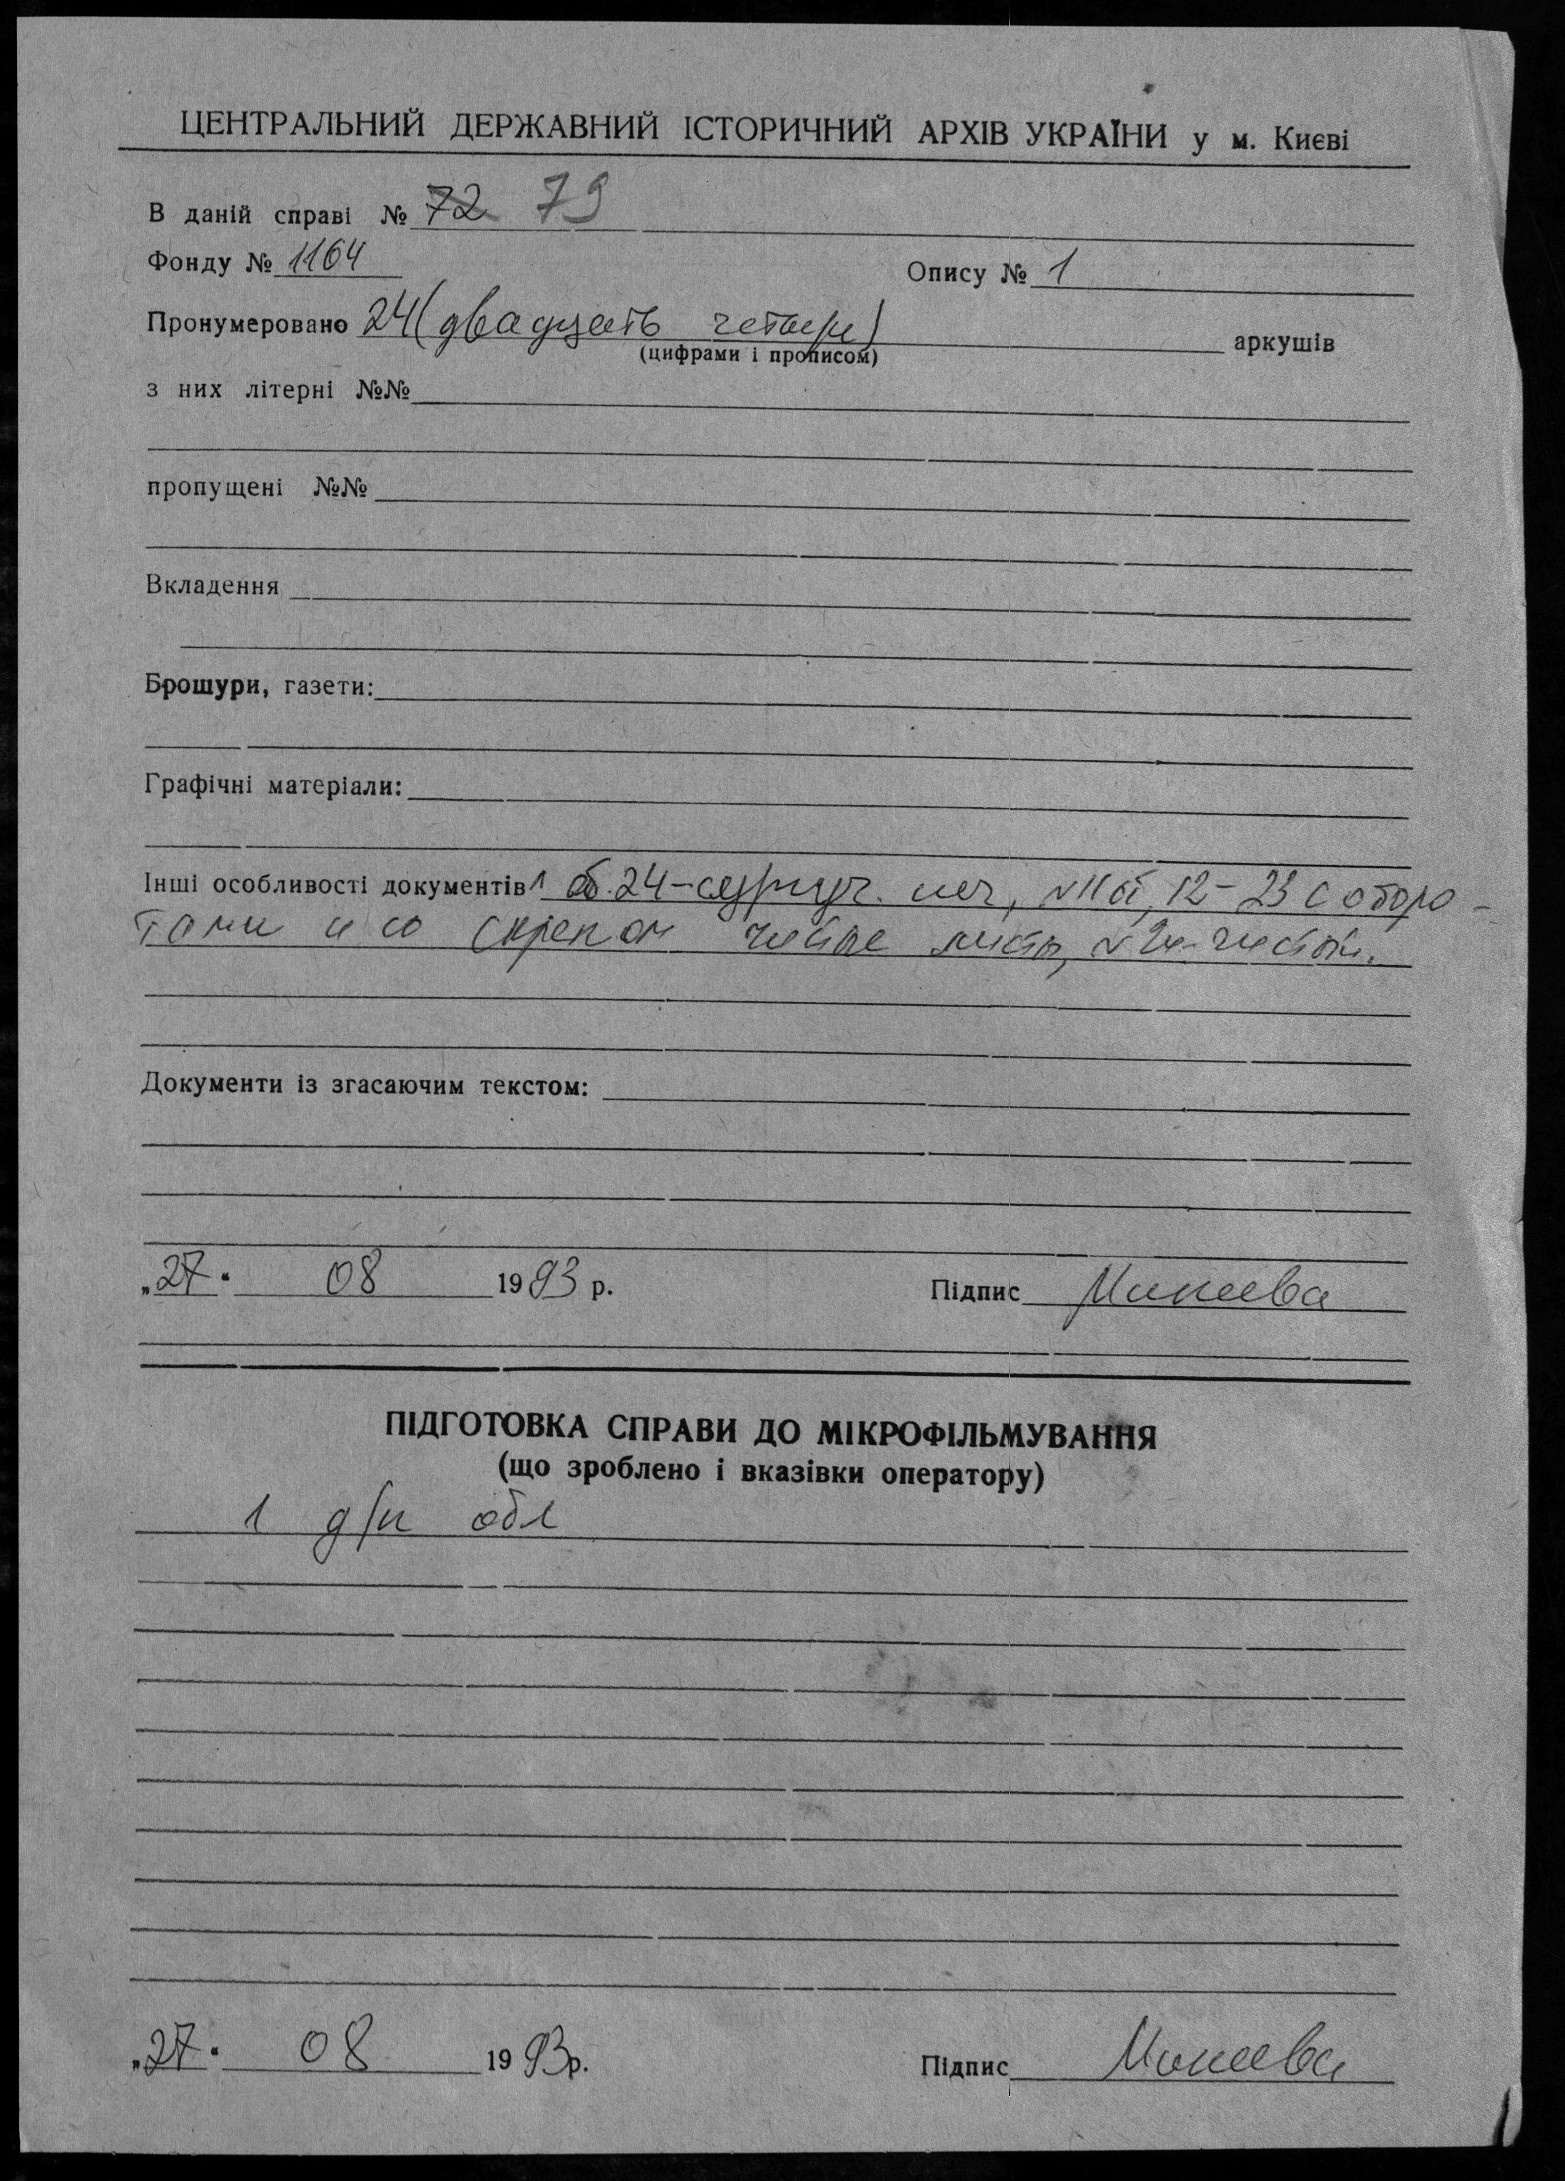 ЦЕНТРАЛЬНИЙ ДЕРЖАВНИЙ ІСТОРИЧНИЙ АРХІВ УКРАЇНИ у м. Києві
В даній справі № 72 79
Фонду № 1164 Опису № 1
Пронумеровано 24 (двадцать четыре) аркушів
(цифрами і прописом)
з них літерні №№
пропущені №№
Вкладення
Брошури, газети:
Графічні матеріали:
Інші особливості документів 1 об. 24 - сургуч. печ, 12-23 с оборо-
тами и со скрепой чистые листы, чистый.
Документи із згасаючим текстом:
„27" 08 1993 р. Підпис
ПІДГОТОВКА СПРАВИ ДО МІКРОФІЛЬМУВАННЯ
(що зроблено і вказівки оператору)
1 д/н обл
„27" 08 1993р. Підпис